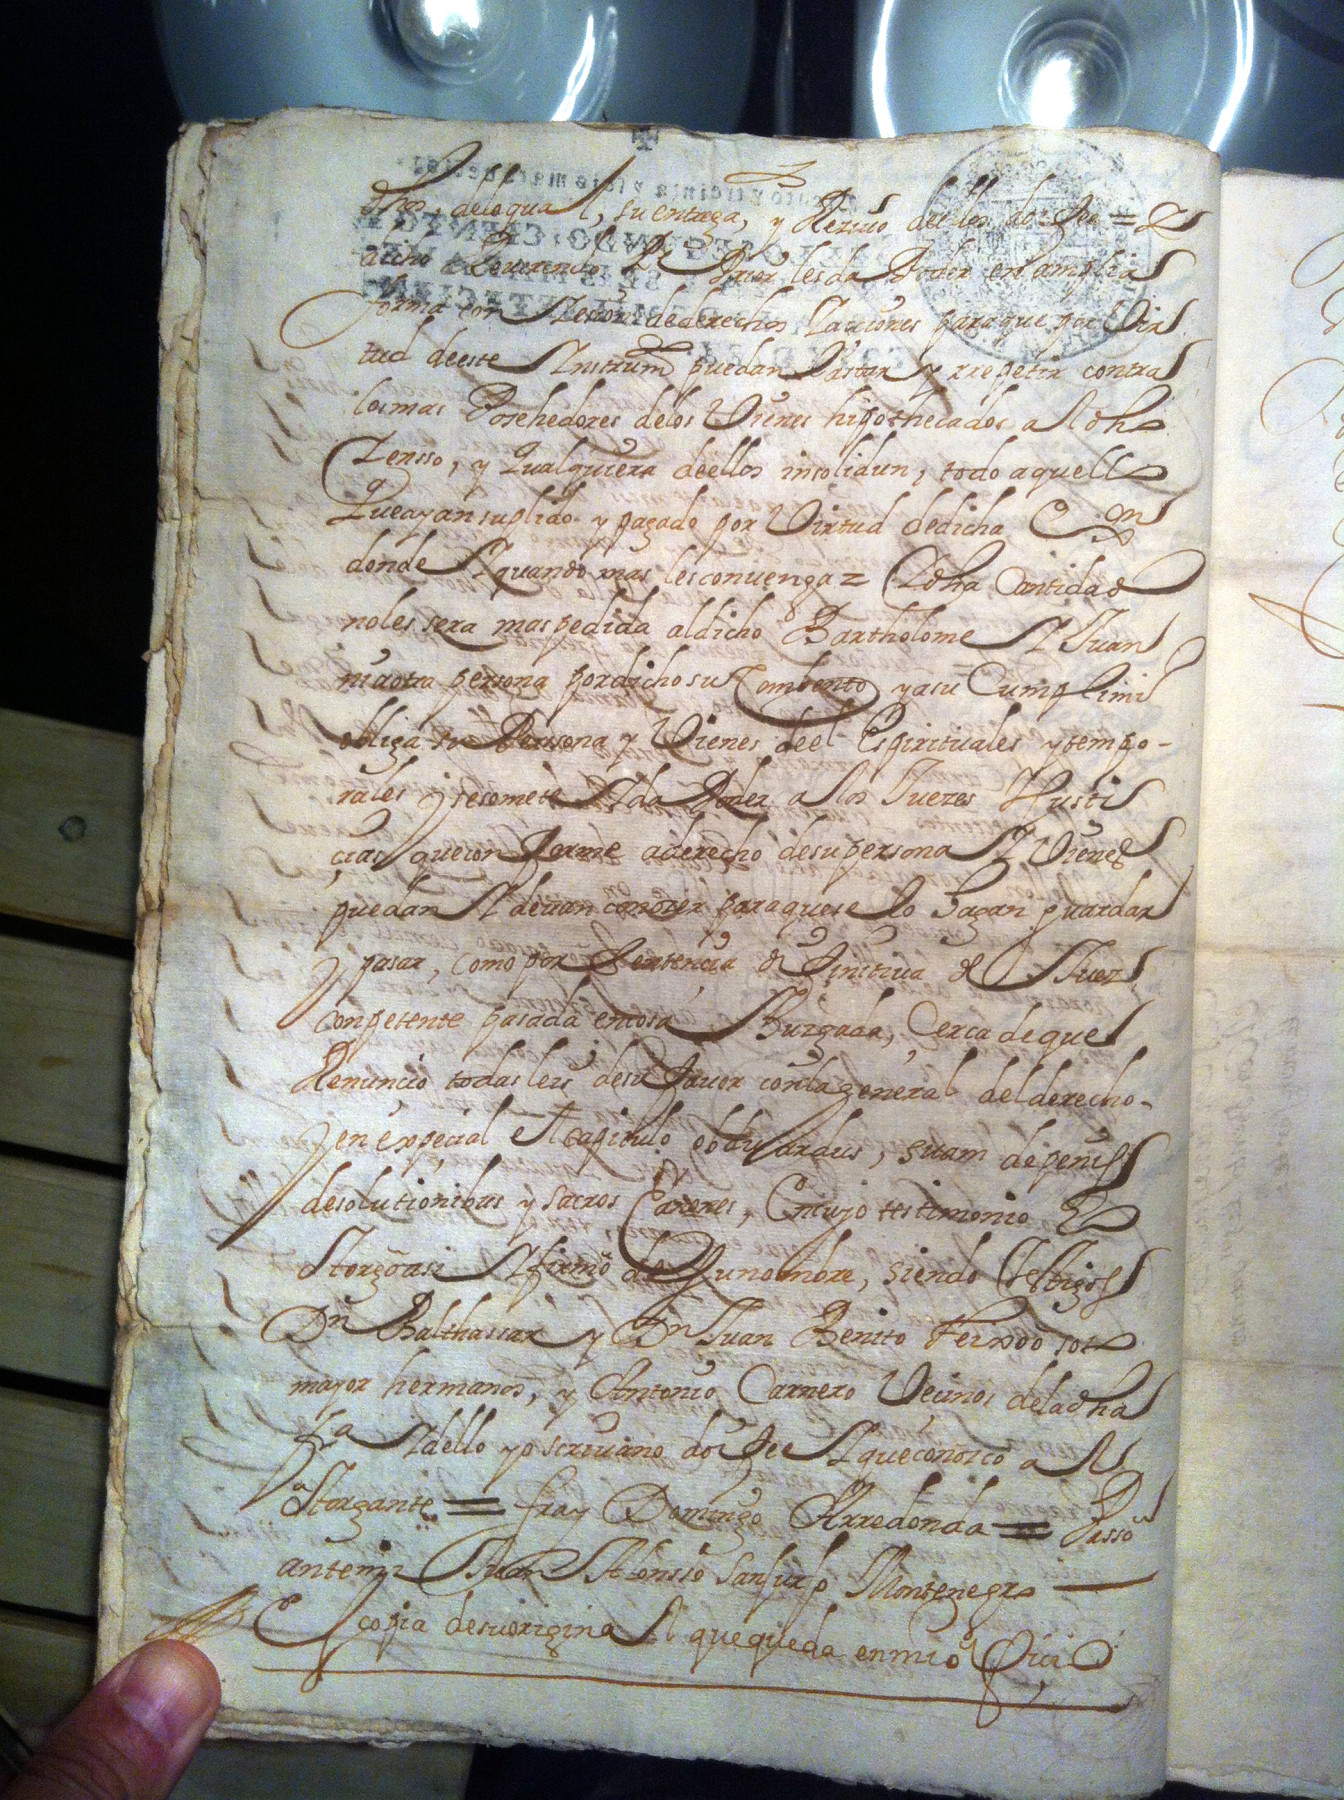 dhos, delo qual, su entrega, y Rezivo dellos doi fee = Y
a dicho Reverendo Pe Prior les da Poder en amplia
forma con Zesion de derechos y acciones para que por Vir
tud de este Instrumto puedan lastar y rrepetir contra
los mas Posehedores de los Vienes hipothecados al dho
Zensso, y qualquiera dellos insolidun, todo aquello
que ayan suplido y pagado por Virtud de dicha
donde y quando mas les convenga = Y dha Cantidad
no les sera mas pedida al dicho Bartholome y Juan
ni a otra persona por dicho su Combento y a su Cumplimto
obliga su Persona y Vienes de el Espirituales y tempo-
rales y se somete y da Poder a los Juezes y Justi
cias que conforme a derecho de su persona y Vienes
puedan y devan conozer para que se lo hagan guardar
y pasar, como por Sentencia difinitiva de Juez
conpetente pasada en cosa Juzgada, Cerca de que
Renuncio todas leis de su favor con la general del derecho-
y en expecial el capitulo obduardus, suam de penis
de solutionibus y sacros Canones, En cuyo testimonio lo
otorgo asi y firmo de su nombre, siendo testigos
Dn Balthassar y Dn Juan Benito Fernдо soto
mayor hermanos, y Antonio Carnero Vecinos de la dha
Va y dello yo scrivano doi fee y que conozco al
otorgante = fray Domingo Arredonda = Passo
ante mi Juan Alonsso Sanjurjo Montenegro
Es copia de su original que queda en mi oficio